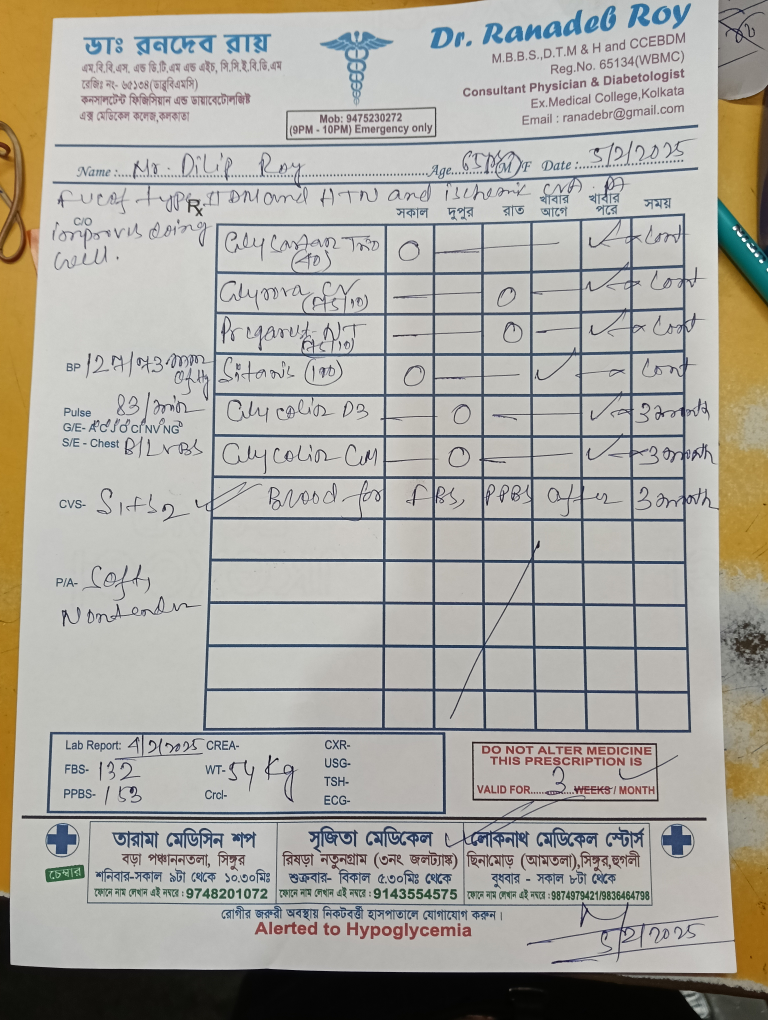 ডাঃ রনদেব রায়
এম.বি.বি.এস. এন্ড ডি.টি.এম এন্ড এইচ, সি.সি.ই.বি.ডি.এম
রেজিঃ নং- ৬৫১৩৪(ডাব্লুবিএমসি)
কনসালটেন্ট ফিজিসিয়ান এন্ড ডায়াবেটোলজিষ্ট
এক্স মেডিকেল কলেজ,কলকাতা
Mob: 9475230272
(9PM - 10PM) Emergency only
Dr. Ranadeb Roy
M.B.B.S.,D.T.M & H and CCEBDM
Reg.No. 65134(WBMC)
Consultant Physician & Diabetologist
Ex.Medical College,Kolkata
Email : ranadebr@gmail.com
Name : Mr. Dilip Roy Age 65 M/F Date : 5/2/2025
type II DM and HTN and ischemic CVA
Rx
সকাল দুপুর রাত খাবার আগে খাবার পরে সময়
C/O
improves doing
well.
(40) Cont
(75/10) Cont
NT (75/10) Cont
(100) Cont
D3 3 month
3 month
Blood for FBS, PPBS after 3 month
BP 127/73 mm of Hg
Pulse 83/min
G/E-
S/E - Chest B/L VBS
CVS- S1+S2
P/A- Soft,
Nontender
Lab Report: 4/2/2025 CREA- CXR-
FBS- 132 WT- 54 Kg USG-
TSH-
PPBS- 153 Crcl- ECG-
DO NOT ALTER MEDICINE
THIS PRESCRIPTION IS
VALID FOR 3 WEEKS / MONTH
চেম্বার
তারামা মেডিসিন শপ
বড়া পঞ্চাননতলা, সিঙ্গুর
শনিবার-সকাল ৯টা থেকে ১০.৩০মিঃ
ফোনে নাম লেখান এই নম্বরে : 9748201072
সৃজিতা মেডিকেল
রিষড়া নতুনগ্রাম (৩নং জলট্যাঙ্ক)
শুক্রবার- বিকাল ৫.৩০মিঃ থেকে
ফোনে নাম লেখান এই নম্বরে : 9143554575
লোকনাথ মেডিকেল স্টোর্স
ছিনামোড় (আমতলা),সিঙ্গুর,হুগলী
বুধবার - সকাল ৮টা থেকে
ফোনে নাম লেখান এই নম্বরে : 9874979421/9836464798
রোগীর জরুরী অবস্থায় নিকটবর্ত্তী হাসপাতালে যোগাযোগ করুন।
Alerted to Hypoglycemia
5/2/2025